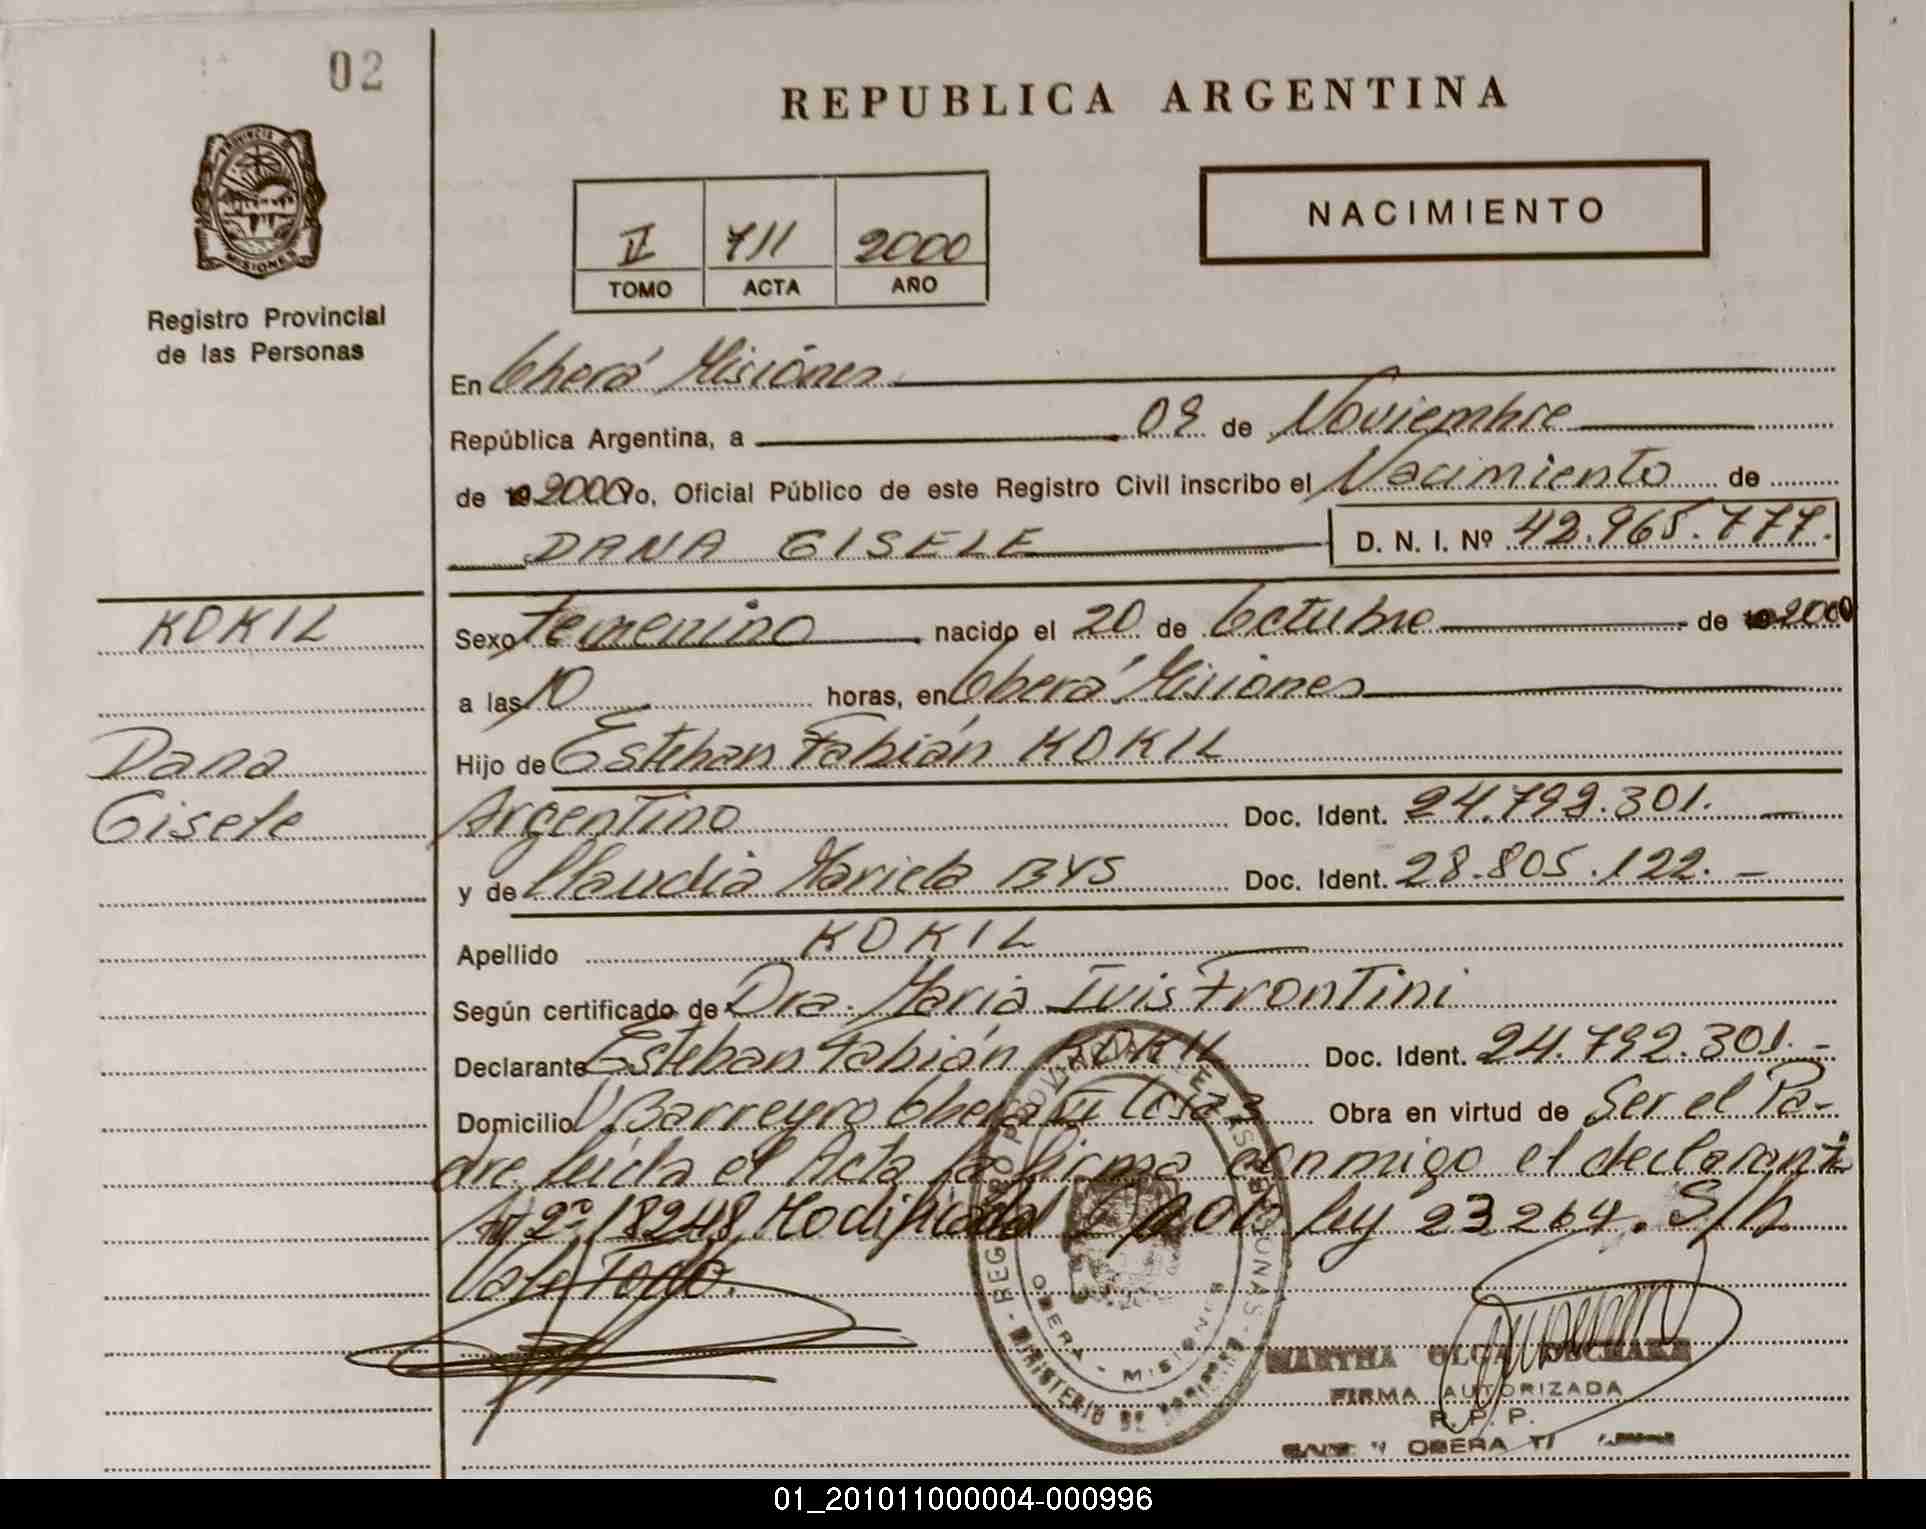 02
REPUBLICA ARGENTINA
PROVINCIA DE
MISIONES
Registro Provincial
de las Personas
NACIMIENTO
711 2000
TOMO ACTA AÑO
En Oberá Misiones
República Argentina, a 09 de Noviembre
de 2000 Yo, Oficial Público de este Registro Civil inscribo el Nacimiento de
DANA GISELE D. N. I. Nº 42.965.777.
KOKIL
Dana
Gisele
Sexo Femenino nacido el 20 de Octubre de 2000
a las 10 horas, en Oberá Misiones
Hijo de Esteban Fabián KOKIL
Argentino Doc. Ident. 24.792.301.
y de Claudia Mariela BYS Doc. Ident. 28.805.122.
Apellido KOKIL
Según certificado de Dra. Maria Luis Frontini
Declarante Esteban Fabián KOKIL Doc. Ident. 24.792.301.
Domicilio Vª Barreyro Oberá Obra en virtud de Ser el Pa-
dre leida el Acta la firma conmigo el declarante
18248 Modificada por ley 23264. S/b
Vale Todo.
REGISTRO PROVINCIAL DE LAS PERSONAS
OBERA - MISIONES
MINISTERIO DE GOBIERNO
MARTHA OLGA
FIRMA AUTORIZADA
R. P. P.
OBERA
01_201011000004-000996